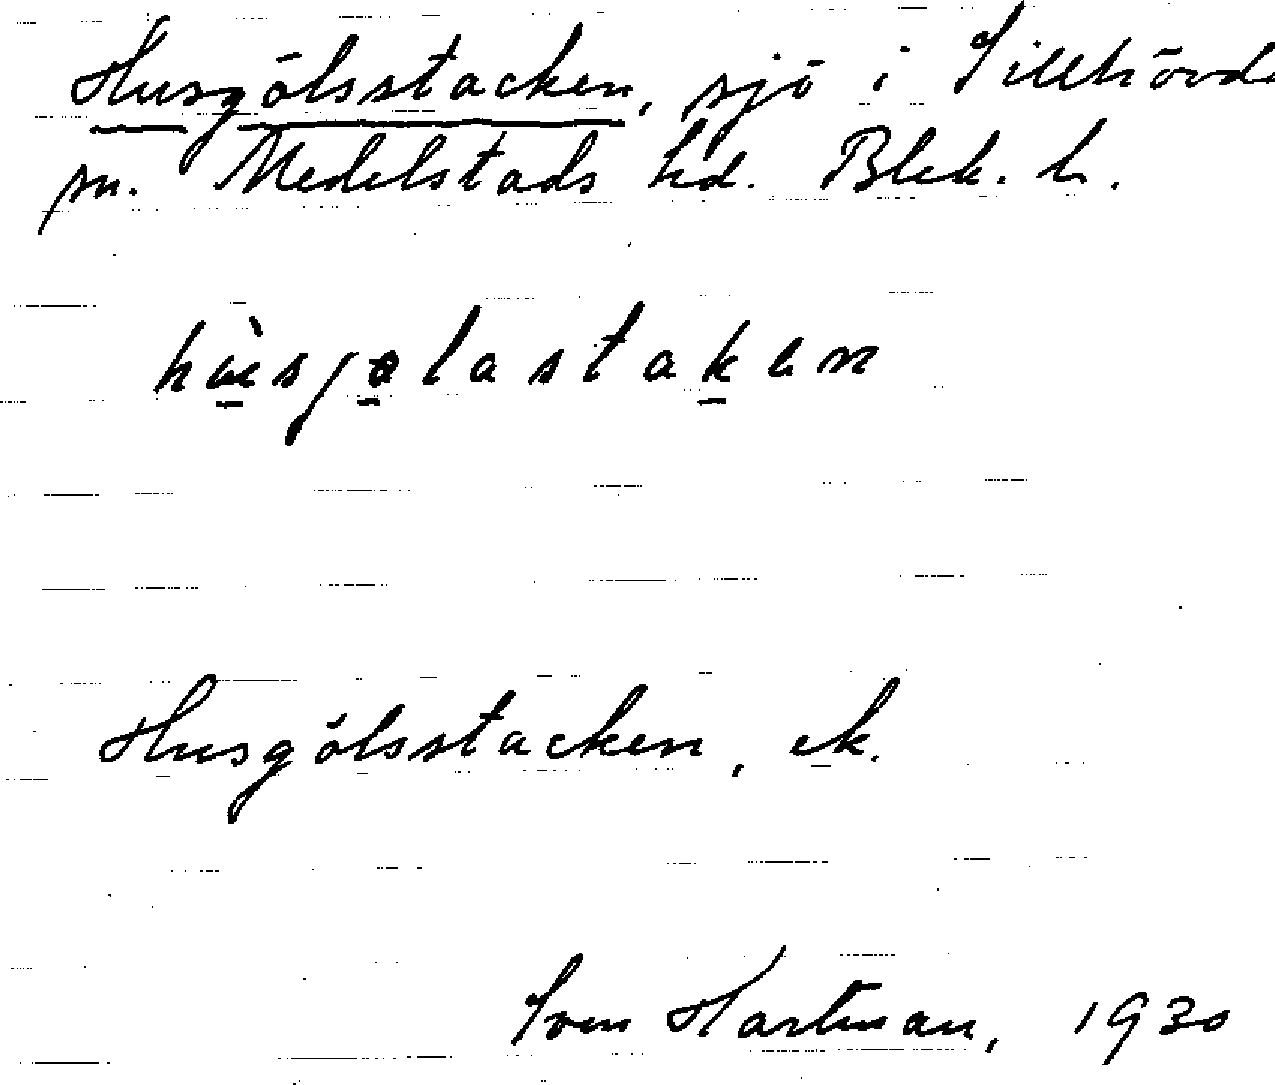 Husgölsstacken, sjö i Sillhövda
sn. Medelstads hd. Blek. l.
hùsjølastaken
Husgölsstacken, ek.
Sven Hartman, 1930